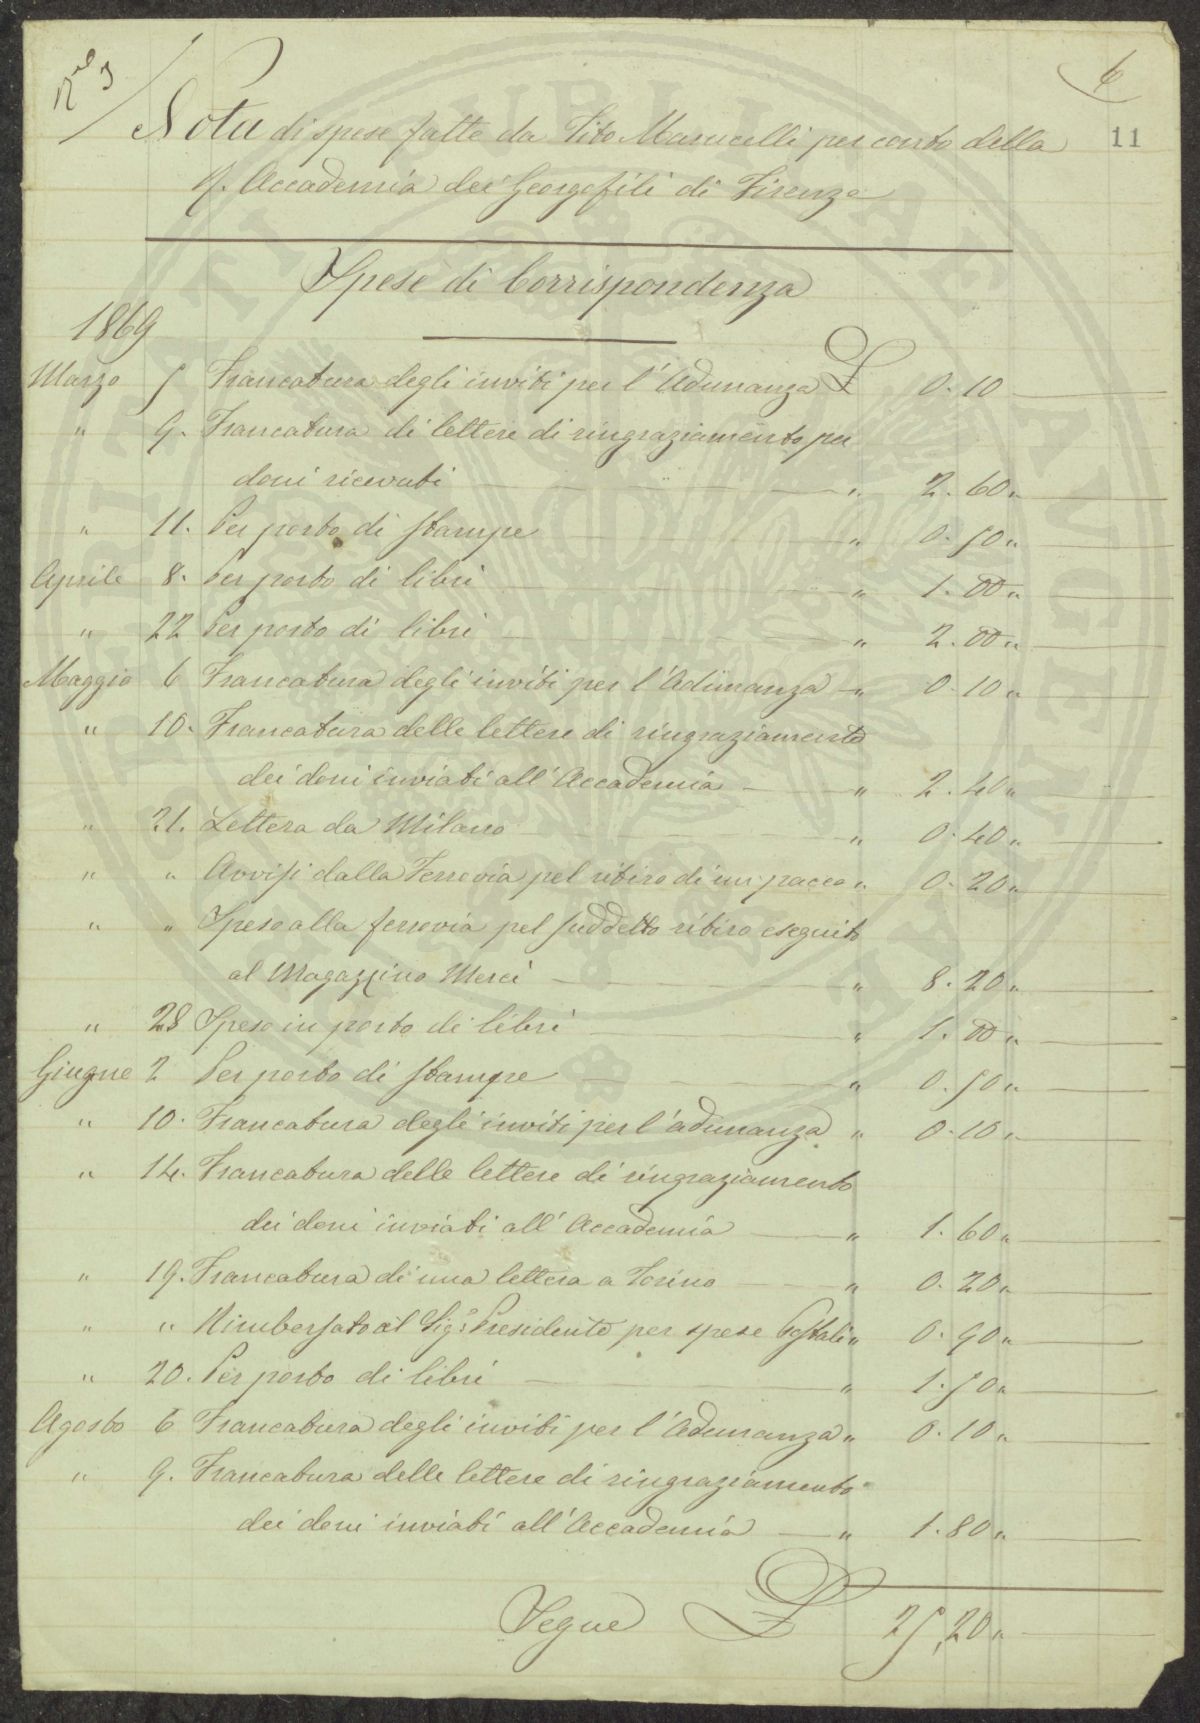 N.º 5
6
11
Nota di spese fatte da Tito Marucelli per conto della
R. Accademia dei Georgofili di Firenze
Spese di Corrispondenza
1869
Marzo 5 Francatura degli inviti per l'Adunanza L 0.10
" 9. Francatura di lettere di ringraziamento per
doni ricevuti " 2.60 "
" 11. Per porto di stampe " 0.50 "
Aprile 8. Per porto di libri " 1.00 "
" 22 Per porto di libri " 2.00 "
Maggio 6 Francatura degli inviti per l'Adunanza " 0.10 "
" 10. Francatura delle lettere di ringraziamento
dei doni inviati all'Accademia " 2.40 "
" 21. Lettera da Milano " 0.40 "
" " Avvisi dalla Ferrovia pel ritiro di un pacco " 0.20 "
" " Spese alla ferrovia pel suddetto ritiro eseguito
al Magazzino Merci " 8.20 "
" 28 Spese in porto di libri " 1.00 "
Giugno 2 Per porto di stampe " 0.50 "
" 10. Francatura degli inviti per l'adunanza " 0.10 "
" 14. Francatura delle lettere di ringraziamento
dei doni inviati all'Accademia " 1.60 "
" 19. Francatura di una lettera a Torino " 0.20 "
" " Rimborsato al Sig. Presidente per spese Postali " 0.90 "
" 20. Per porto di libri " 1.50 "
Agosto 6 Francatura degli inviti per l'Adunanza " 0.10 "
" 9. Francatura delle lettere di ringraziamento
dei doni inviati all'Accademia " 1.80 "
Segue L 25,20 "